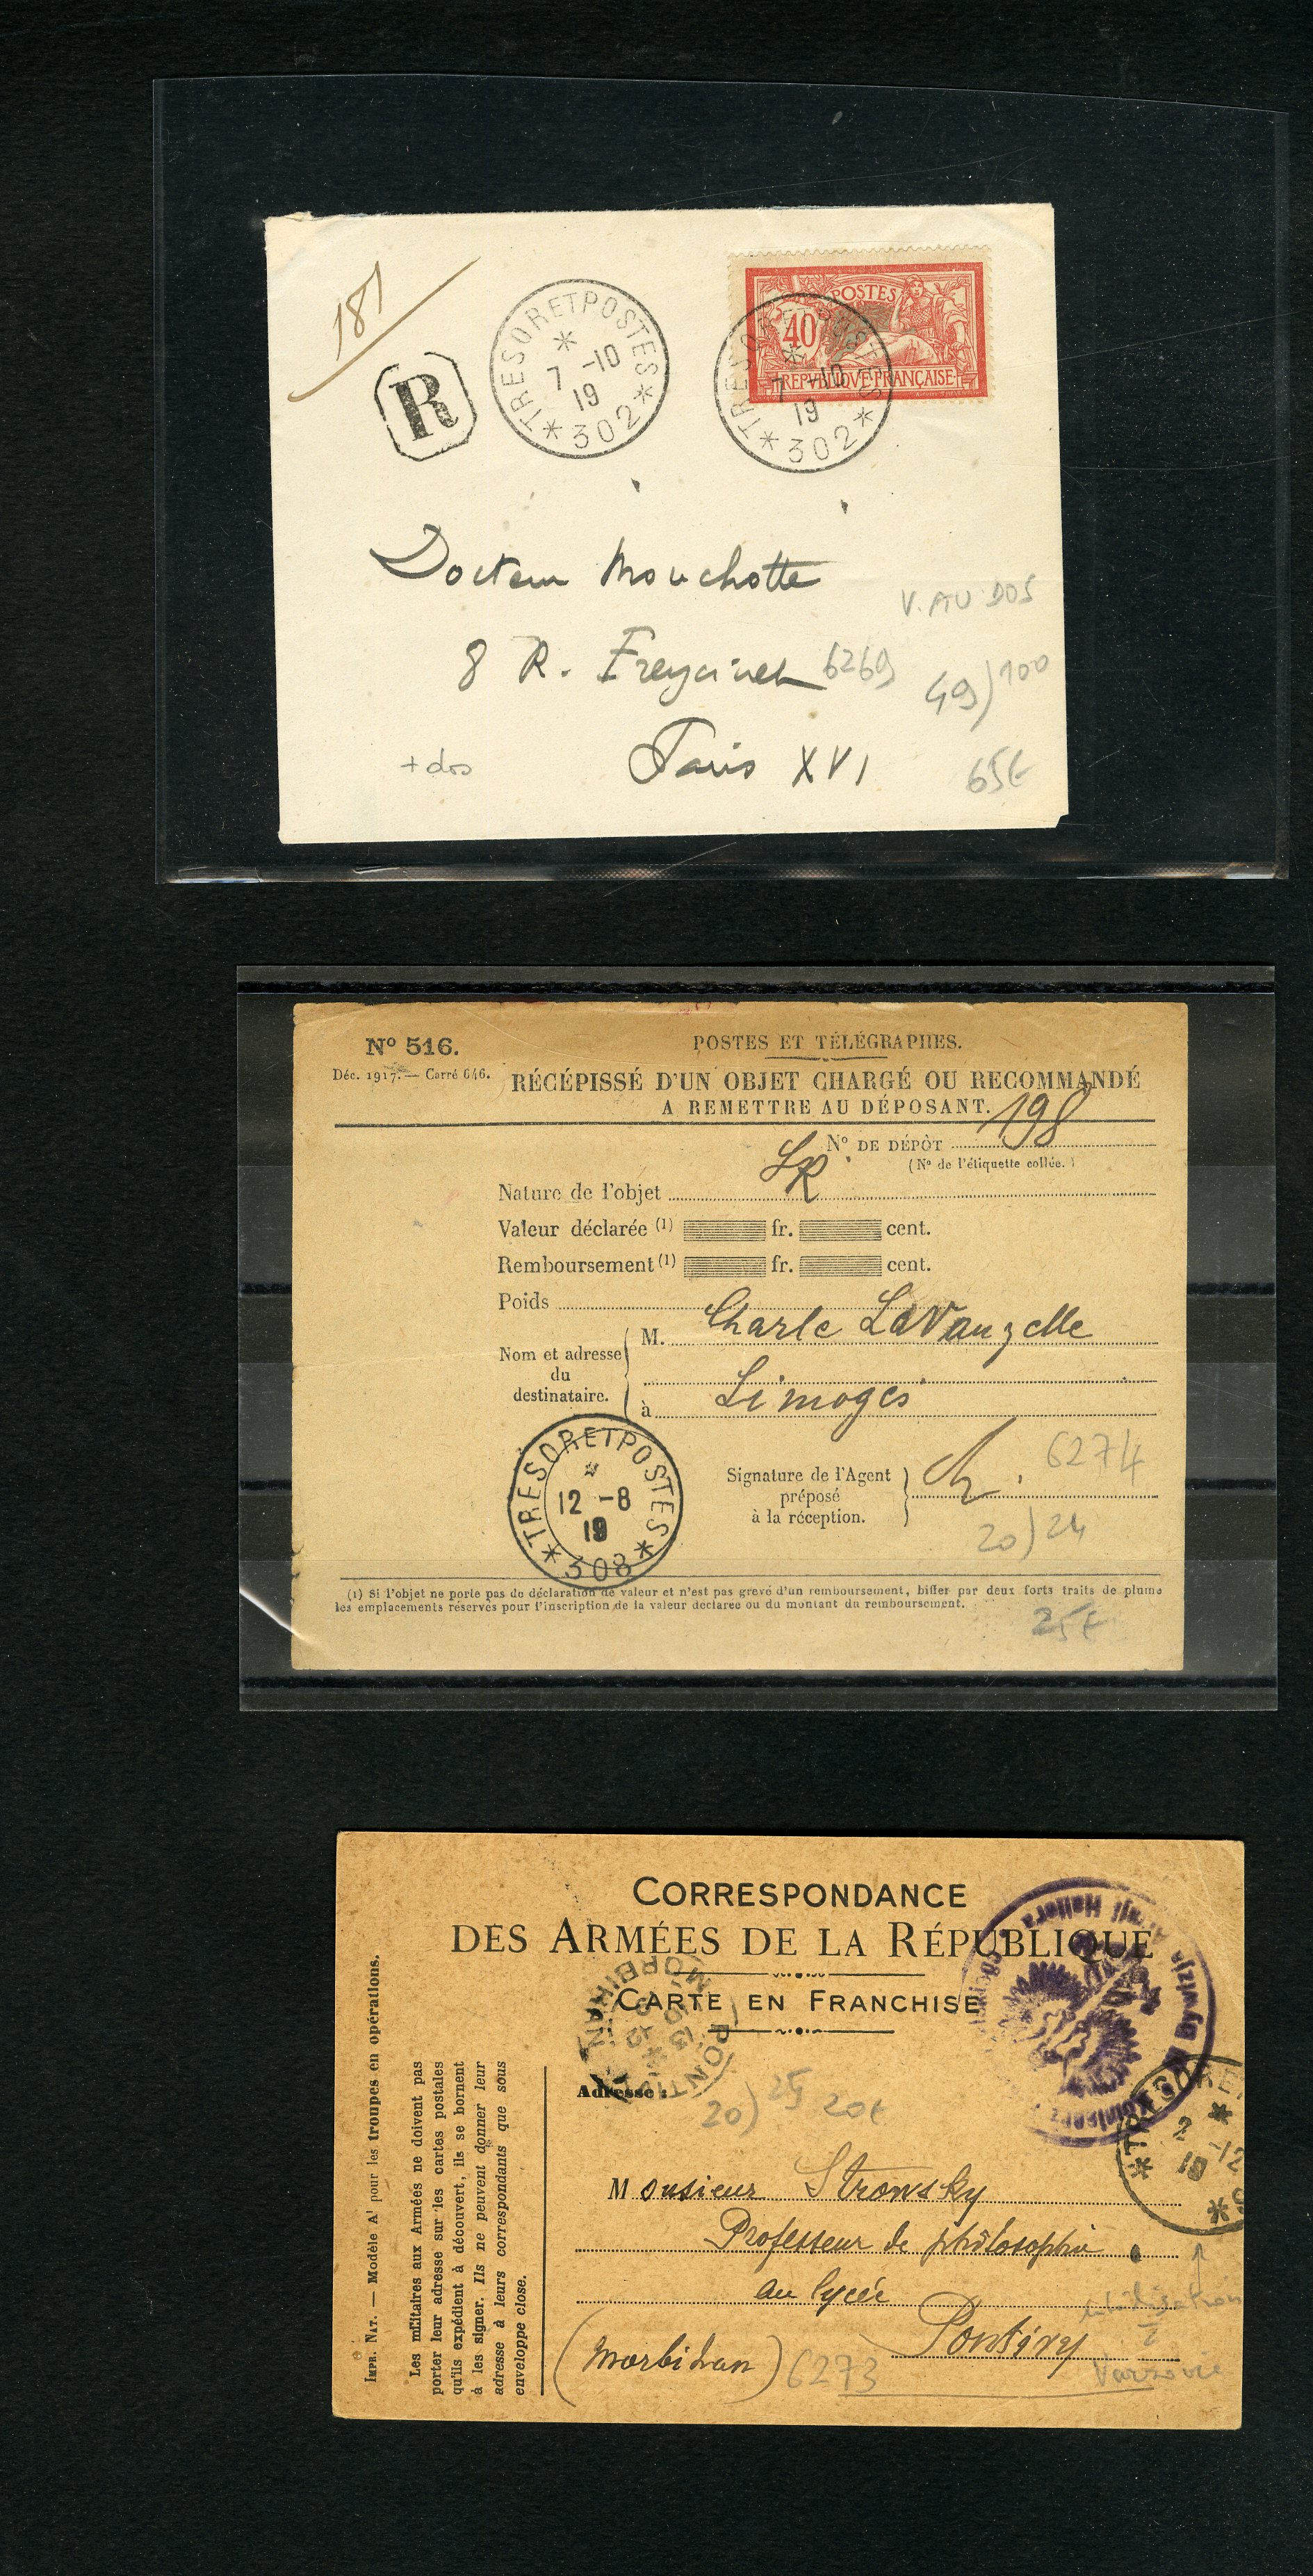 181
R
TRESOR ET POSTES
7 -10
19
* 302 *
POSTES
40
REPVBLIQVE FRANÇAISE
TRESOR ET POSTES
7 -10
19
* 302 *
Docteur Mouchotte
V. AU DOS
8 R. Freycinet 6269
49) 100
+ dos
Paris XVI
65€
Nº 516.
POSTES ET TÉLÉGRAPHES.
Déc. 1917. — Carré 646.
RÉCÉPISSÉ D'UN OBJET CHARGÉ OU RECOMMANDÉ
A REMETTRE AU DÉPOSANT.
Nº DE DÉPÔT 198
(Nº de l'étiquette collée.)
Nature de l'objet LR
Valeur déclarée (1) fr. cent.
Remboursement (1) fr. cent.
Poids
Nom et adresse du destinataire.
M. Charle LaVauzelle
à Limoges
TRESOR ET POSTES
12 -8
19
* 308 *
Signature de l'Agent préposé à la réception.
6274
20) 24
(1) Si l'objet ne porte pas de déclaration de valeur et n'est pas grevé d'un remboursement, biffer par deux forts traits de plume
les emplacements réservés pour l'inscription de la valeur déclarée ou du montant du remboursement.
25€
CORRESPONDANCE
DES ARMÉES DE LA RÉPUBLIQUE
CARTE EN FRANCHISE
Impr. Nat. — Modèle A¹ pour les troupes en opérations.
Les militaires aux Armées ne doivent pas
porter leur adresse sur les cartes postales
qu'ils expédient à découvert, ils se bornent
à les signer. Ils ne peuvent donner leur
adresse à leurs correspondants que sous
enveloppe close.
PONTIVY
MORBIHAN
Hallera
Dywizja
2 -12
19
Adresse :
20) 25 20€
Monsieur Strowsky
Professeur de philosophie
au lycée
Pontivy
(Morbihan) 6273
Varsovie